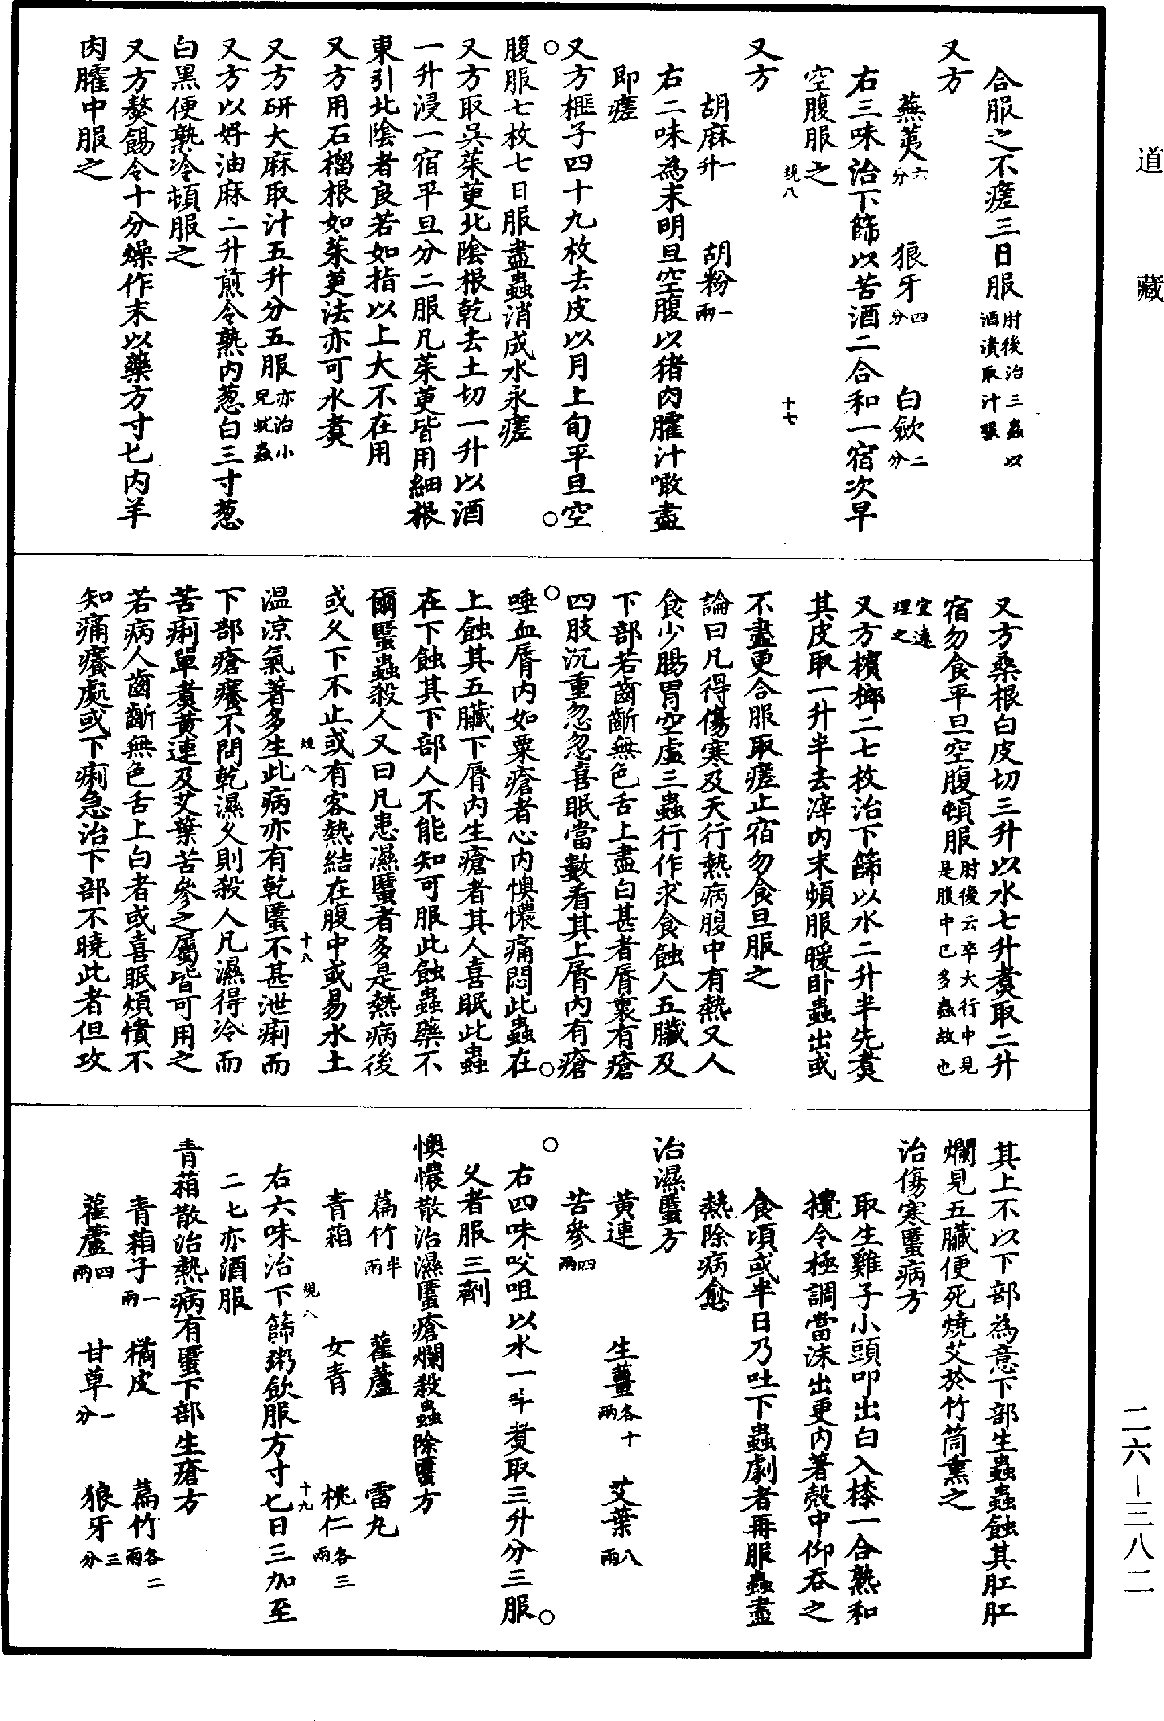 道藏
合服之不瘥三日服肘後治三蟲以酒漬取汁服
又方
蕪荑六分 狼牙四分 白歛二分
右三味治下篩以苦酒二合和一宿次早
空腹服之
競八 十七
又方
胡麻一升 胡粉一兩
右二味為末明旦空腹以猪肉臛汁噉盡
即瘥
又方榧子四十九枚去皮以月上旬平旦空
腹服七枚七日服盡蟲消成水永瘥
又方取吳茱萸北陰根乾去土切一升以酒
一升浸一宿平旦分二服凡茱萸皆用細根
東引北陰者良若如指以上大不在用
又方用石榴根如茱萸法亦可水煑
又方研大麻取汁五升分五服亦治小兒蚘蟲
又方以好油麻二升煎令熟內葱白三寸葱
白黑便熟冷頓服之
又方熬餳令十分燥作末以藥方寸匕內羊
肉臛中服之
又方桑根白皮切三升以水七升煑取二升
宿勿食平旦空腹頓服肘後云卒大行中見是腹中已多蟲故也
宜速理之
又方檳榔二七枚治下篩以水二升半先煑
其皮取一升半去滓內末頓服暖卧蟲出或
不盡更合服取瘥止宿勿食旦服之
論曰凡得傷寒及天行熱病腹中有熱又人
食少腸胃空虛三蟲行作求食蝕人五臟及
下部若齒齗無色舌上盡白甚者脣裏有瘡
四肢沉重忽忽喜眠當數看其上脣內有瘡
唾血脣內如粟瘡者心內懊憹痛悶此蟲在
上蝕其五臟下脣內生瘡者其人喜眠此蟲
在下蝕其下部人不能知可服此蝕蟲藥不
爾䘌蟲殺人又曰凡患濕䘌者多是熱病後
或久下不止或有客熱結在腹中或易水土
競八 十八
溫涼氣著多生此病亦有乾䘌不甚泄痢而
下部瘡癢不問乾濕久則殺人凡濕得冷而
苦痢單煑黃連及艾葉苦參之屬皆可用之
若病人齒齗無色舌上白者或喜眠煩憒不
知痛癢處或下痢急治下部不曉此者但攻
其上不以下部為意下部生蟲蟲蝕其肛肛
爛見五臟便死燒艾於竹筒熏之
治傷寒䘌病方
取生雞子小頭叩出白入漆一合熟和
攪令極調當沫出更內著殼中仰吞之
食頃或半日乃吐下蟲劇者再服蟲盡
熱除病愈
治濕䘌方
黃連 生薑各十兩 艾葉八兩
苦參四兩
右四味㕮咀以水一斗煑取三升分三服
久者服三劑
懊憹散治濕䘌瘡爛殺蟲除䘌方
萹竹半兩 雚蘆 雷丸
青葙 女青 桃仁各三兩
競八 十九
右六味治下篩粥飲服方寸匕日三加至
二七亦酒服
青葙散治熱病有䘌下部生瘡方
青葙子一兩 橘皮 萹竹各二兩
雚蘆四兩 甘草一分 狼牙三分
二六—三八二